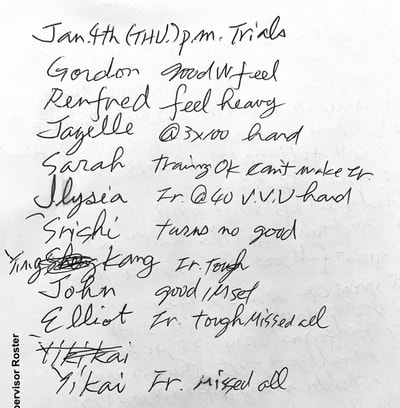 Jan. 4th (THU.) p.m. Trials
Gordon good W feel
Renfred feel heavy
Jazelle @3x100 hard
Sarah training OK can't make Ir.
Jlysia Ir. @40 V.V.V hard
Srishi turns no good
Ying Kang Ir. Tough
John good IM set
Elliot Ir. tough Missed all
Yikikai
Yikai Ir. Missed all
pervisor Roster